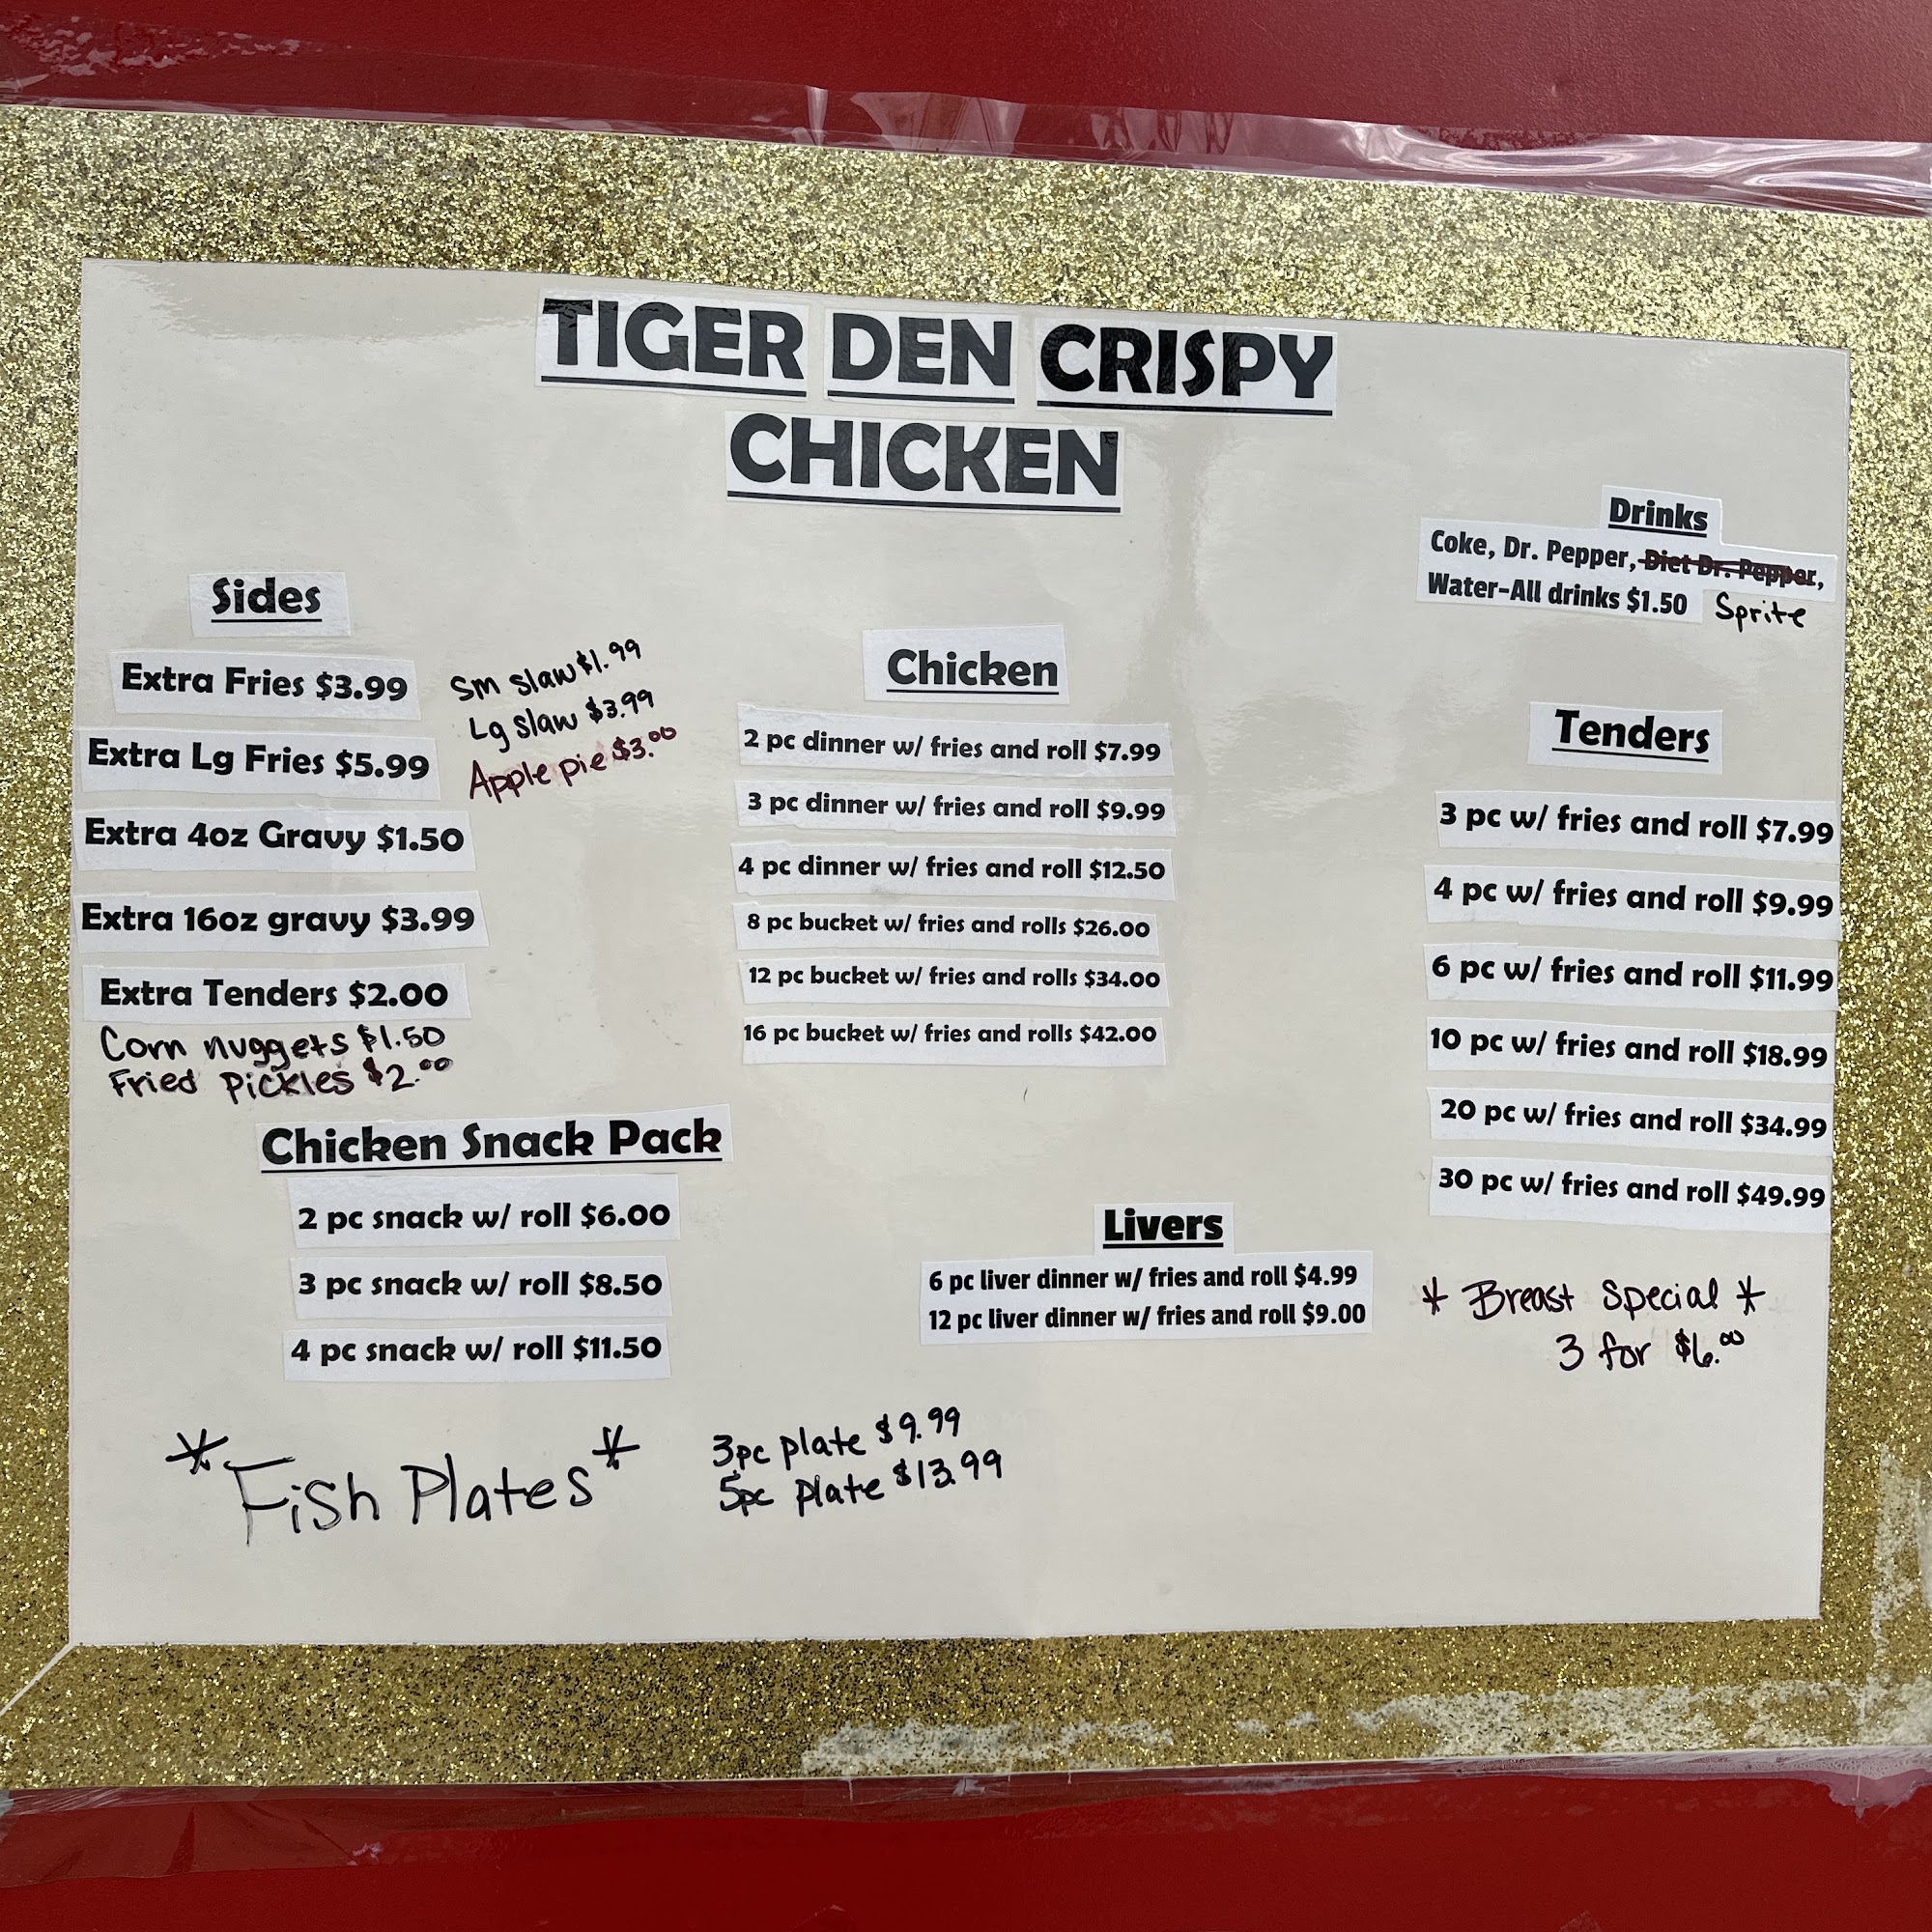 TIGER DEN CRISPY
CHICKEN
Drinks
Coke, Dr. Pepper, Diet Dr. Pepper,
Water-All drinks $1.50 Sprite
Sides
Extra Fries $3.99
Extra Lg Fries $5.99
Extra 4oz Gravy $1.50
Extra 16oz gravy $3.99
Extra Tenders $2.00
Corn nuggets $1.50
Fried Pickles $2.00
Sm slaw $1.99
Lg slaw $3.99
Apple pie $3.00
Chicken
2 pc dinner w/ fries and roll $7.99
3 pc dinner w/ fries and roll $9.99
4 pc dinner w/ fries and roll $12.50
8 pc bucket w/ fries and rolls $26.00
12 pc bucket w/ fries and rolls $34.00
16 pc bucket w/ fries and rolls $42.00
Tenders
3 pc w/ fries and roll $7.99
4 pc w/ fries and roll $9.99
6 pc w/ fries and roll $11.99
10 pc w/ fries and roll $18.99
20 pc w/ fries and roll $34.99
30 pc w/ fries and roll $49.99
Chicken Snack Pack
2 pc snack w/ roll $6.00
3 pc snack w/ roll $8.50
4 pc snack w/ roll $11.50
Livers
6 pc liver dinner w/ fries and roll $4.99
12 pc liver dinner w/ fries and roll $9.00
* Breast Special *
3 for $6.00
*Fish Plates*
3pc plate $9.99
5pc plate $13.99